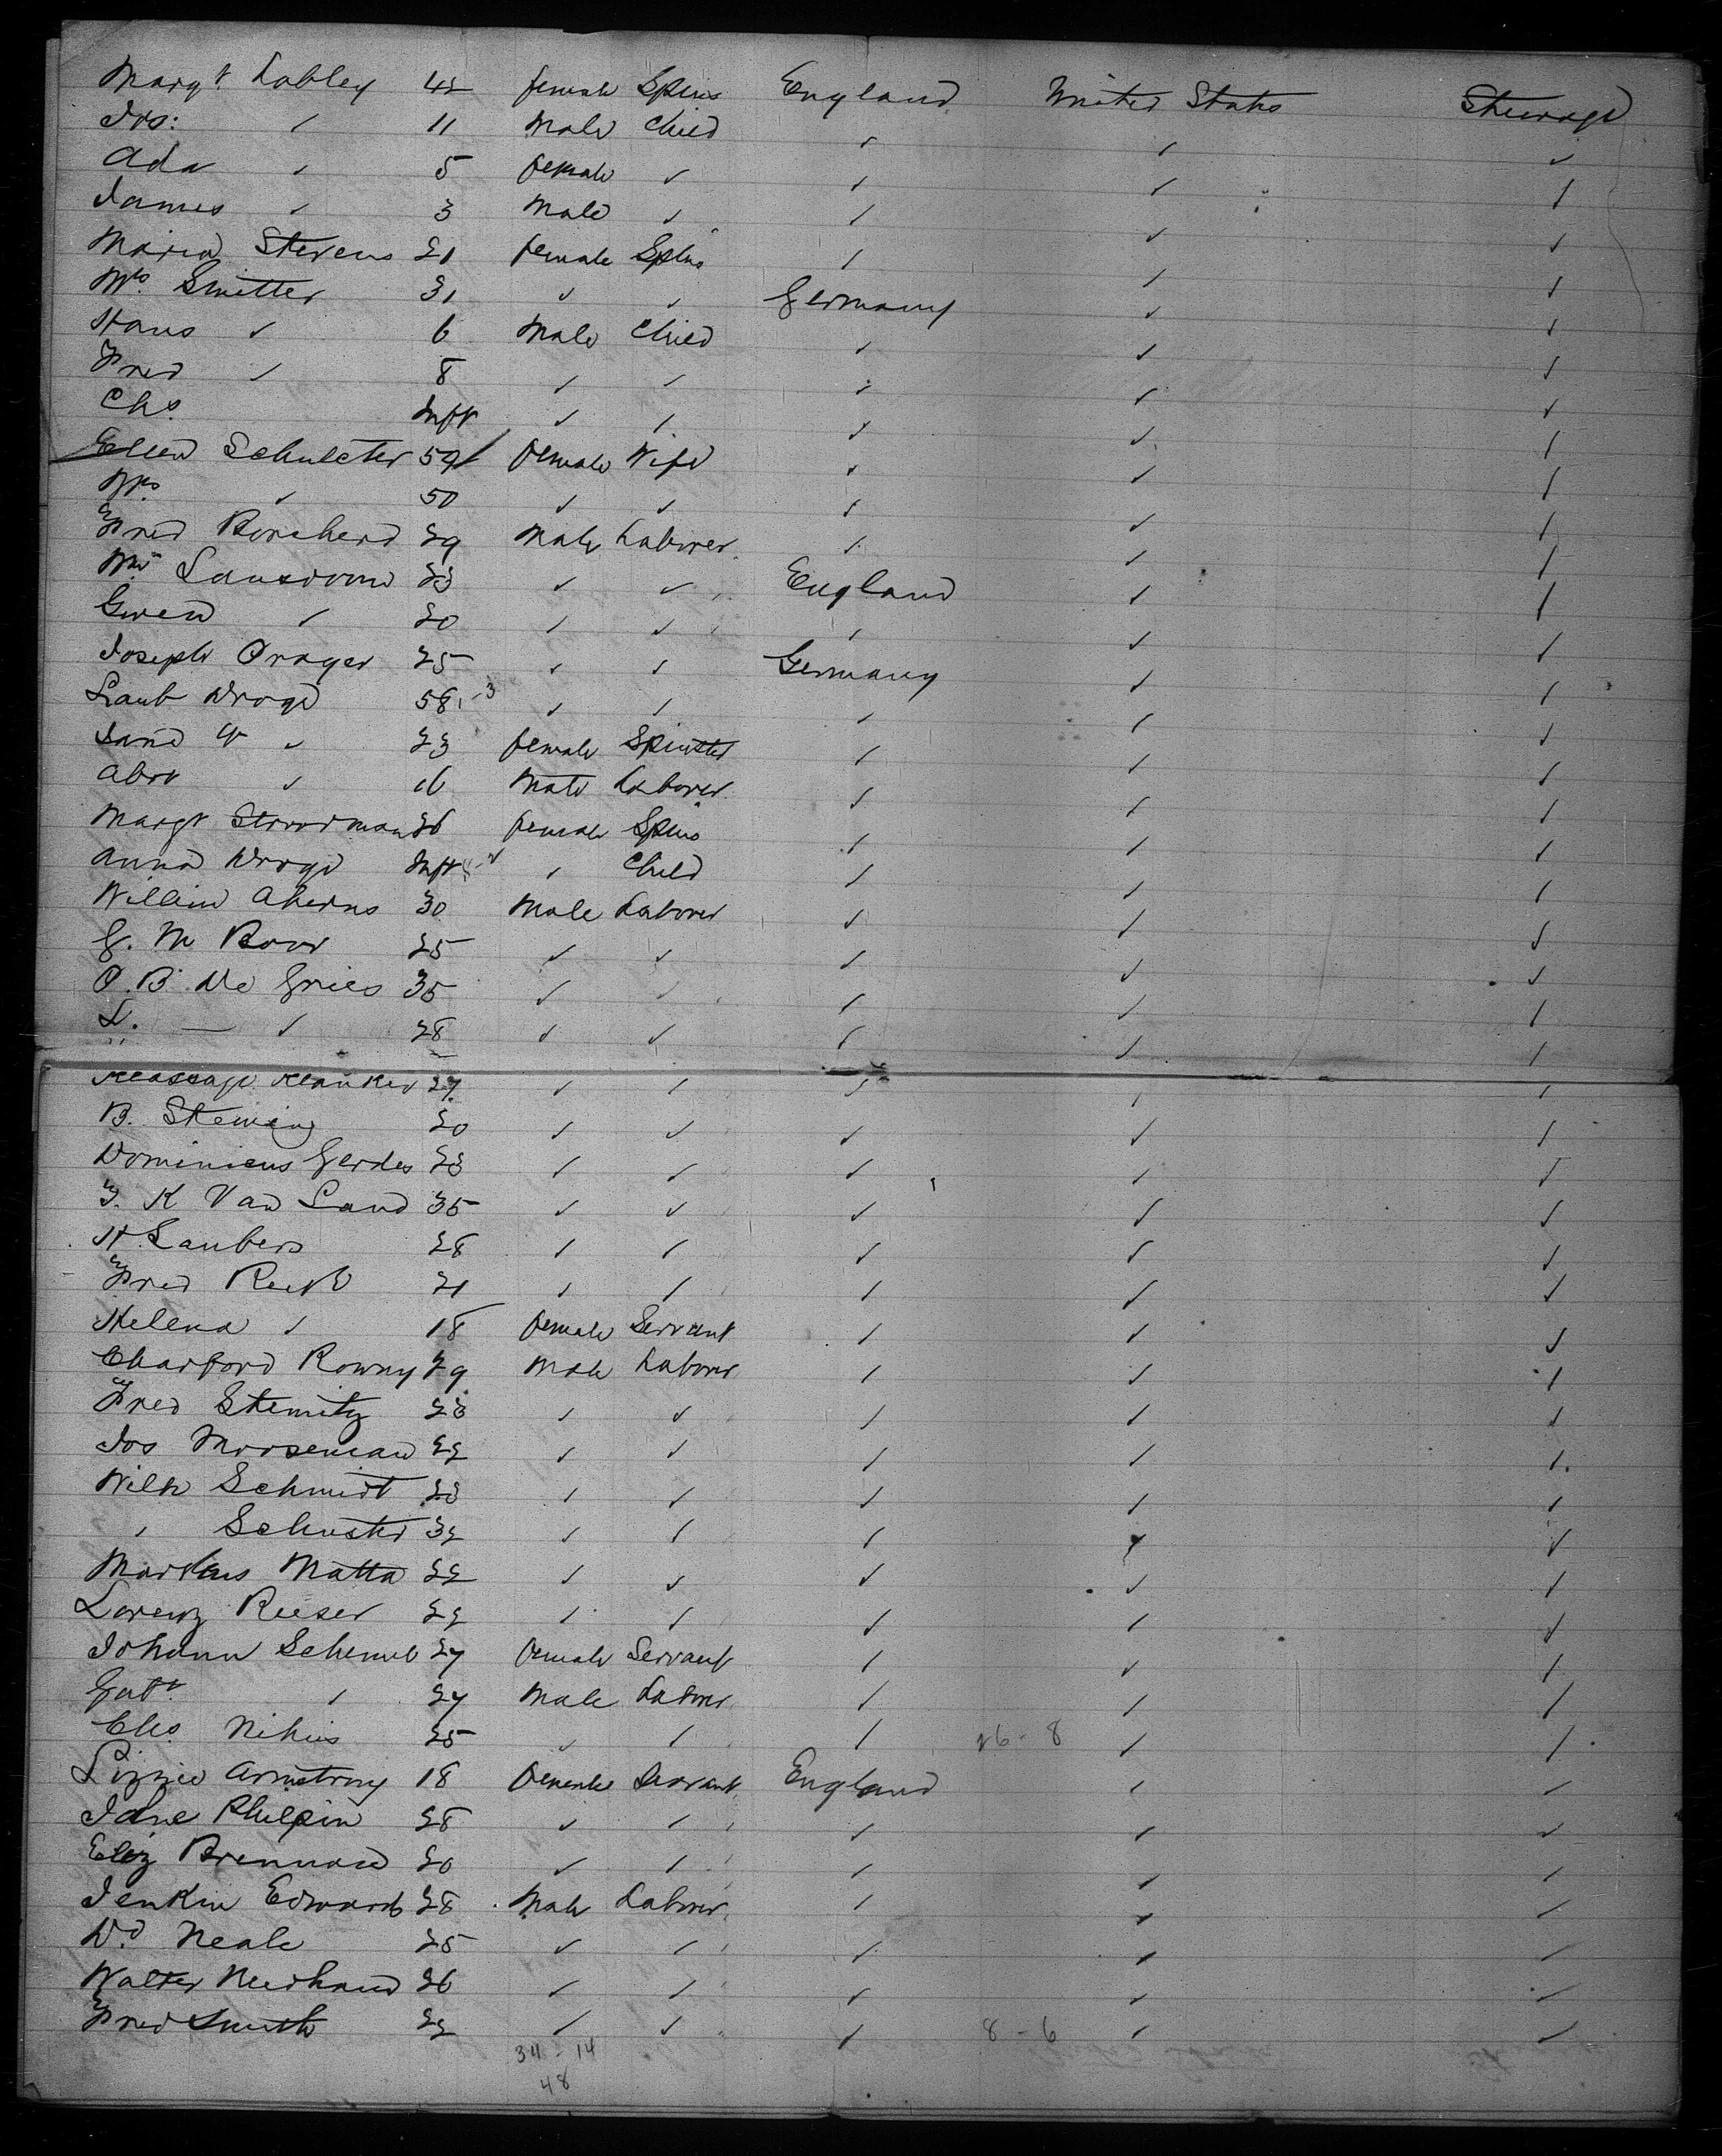 Margt. Lobley 42 female Spins England United States Steerage
Jos: ✓ 11 Male Child ✓ ✓ ✓
Ada ✓ 5 female ✓ ✓ ✓ ✓
James ✓ 3 Male ✓ ✓ ✓ ✓
Maria Stevens 21 female Spins ✓ ✓ ✓
Mrs. Smitter 31 ✓ ✓ Germany ✓ ✓
Hans ✓ 6 Male Child ✓ ✓ ✓
Fred ✓ 8 ✓ ✓ ✓ ✓ ✓
Chs. Inft ✓ ✓ ✓ ✓ ✓
Ellen Schulcter 59 female Wife ✓ ✓ ✓
Mrs ✓ 50 ✓ ✓ ✓ ✓ ✓
Fred Borcherd 29 Male Laborer ✓ ✓ ✓
Wm Lansdown 23 ✓ ✓ England ✓ ✓
Gwen ✓ 20 ✓ ✓ ✓ ✓ ✓
Joseph Orager 25 ✓ ✓ Germany ✓ ✓
Laub Droge 58 - 3 ✓ ✓ ✓ ✓ ✓
✓ 23 female Spinster ✓ ✓ ✓
Abrt ✓ 16 Male Laborer ✓ ✓ ✓
Margt Stroorman 26 female Spins ✓ ✓ ✓
Anna Droge Inft ✓ Child ✓ ✓ ✓
Willim Aherns 30 Male Laborer ✓ ✓ ✓
G. M Boor 25 ✓ ✓ ✓ ✓ ✓
O. B. De Gries 35 ✓ ✓ ✓ ✓ ✓
L. — ✓ 28 ✓ ✓ ✓ ✓ ✓
Klanker 27 ✓ ✓ ✓ ✓ ✓
B. Steming 20 ✓ ✓ ✓ ✓ ✓
Dominicus Gerdes 23 ✓ ✓ ✓ ✓ ✓
F. K Van Sand 35 ✓ ✓ ✓ ✓ ✓
H. Laubers 28 ✓ ✓ ✓ ✓ ✓
Fred 21 ✓ ✓ ✓ ✓ ✓
Helena ✓ 18 female Servant ✓ ✓ ✓
Charford Rowny 29 Male Laborer ✓ ✓ ✓
Fred Stemitz 23 ✓ ✓ ✓ ✓ ✓
Jos Mooseman 22 ✓ ✓ ✓ ✓ ✓
Wilh Schmidt 23 ✓ ✓ ✓ ✓ ✓
✓ Schuster 32 ✓ ✓ ✓ ✓ ✓
Markus Matta 22 ✓ ✓ ✓ ✓ ✓
Lorenz Rieser 22 ✓ ✓ ✓ ✓ ✓
Johann 27 female Servant ✓ ✓ ✓
Gott ✓ 27 Male Laborer ✓ ✓ ✓
Chs. Nihius 25 ✓ ✓ ✓ 26 - 8 ✓ ✓
Lizzie Armstrong 18 female Servant England ✓ ✓
Jane Philpin 28 ✓ ✓ ✓ ✓ ✓
Eliz Brennard 20 ✓ ✓ ✓ ✓ ✓
Jenkin Edwards 28 Male Laborer ✓ ✓ ✓
Dd Neale 25 ✓ ✓ ✓ ✓ ✓
Walter 26 ✓ ✓ ✓ ✓ ✓
Fred Smith 22 ✓ ✓ ✓ 8 - 6 ✓ ✓
34 - 14
48